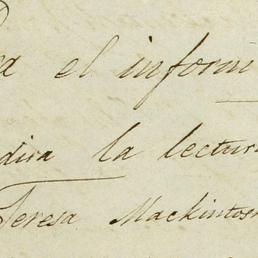 a el inform
dira la lectura
Teresa Mackintosh